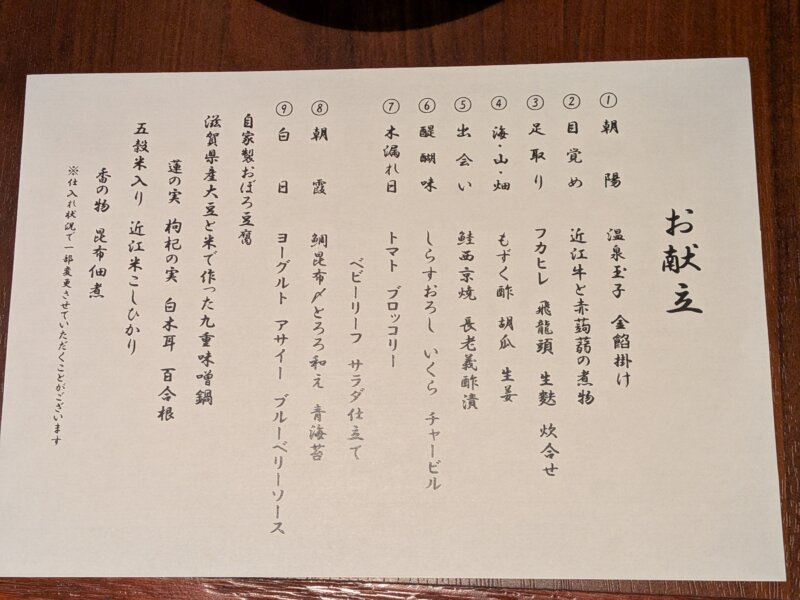 お献立
① 朝陽 温泉玉子 金餡掛け
② 目覚め 近江牛と赤蒟蒻の煮物
③ 足取り フカヒレ 飛龍頭 生麩 炊合せ
④ 海・山・畑 もずく酢 胡瓜 生姜
⑤ 出会い 鮭西京焼 長老義酢漬
⑥ 醍醐味 しらすおろし いくら チャービル
⑦ 木漏れ日 トマト ブロッコリー
ベビーリーフ サラダ仕立て
⑧ 朝霞 鯛昆布〆とろろ和え 青海苔
⑨ 白日 ヨーグルト アサイー ブルーベリーソース
自家製おぼろ豆腐
滋賀県産大豆と米で作った九重味噌鍋
蓮の実 枸杞の実 白木耳 百合根
五穀米入り 近江米こしひかり
香の物 昆布佃煮
※仕入れ状況で一部変更させていただくことがございます